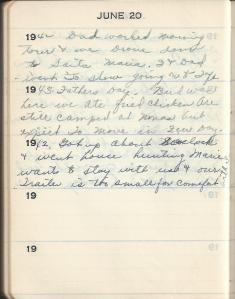 JUNE 20
1942 Dad worked morning
tour & we drove down
to Santa Maria. I & Dad
went to show going
1943 Fathers Day. Bud was
here we ate fried chicken are
still camped at Nonas but
expect to move in few day.
19 Got up about 8 oclock
& went house hunting Marie
wants to stay with us & our
Trailer is too small for comfort
19
19